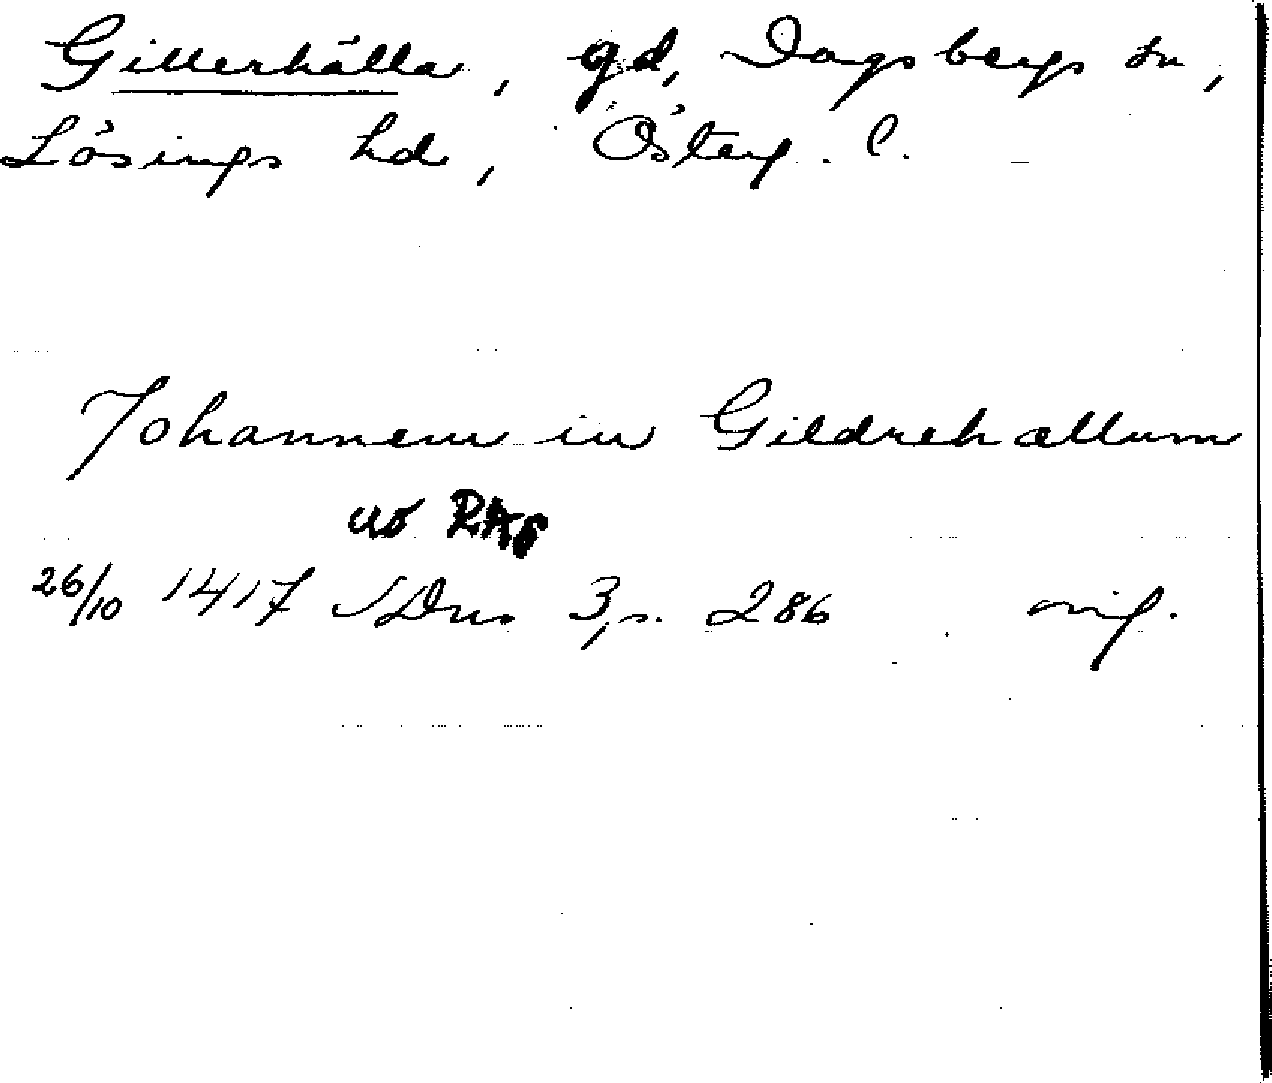 Gillerhälla, gd, Dagsbergs sn,
Lösings hd, Österg. l.
Johannem in Gildrehællum
uo RAp
26/10 1417 SDns 3, s. 286 orig.